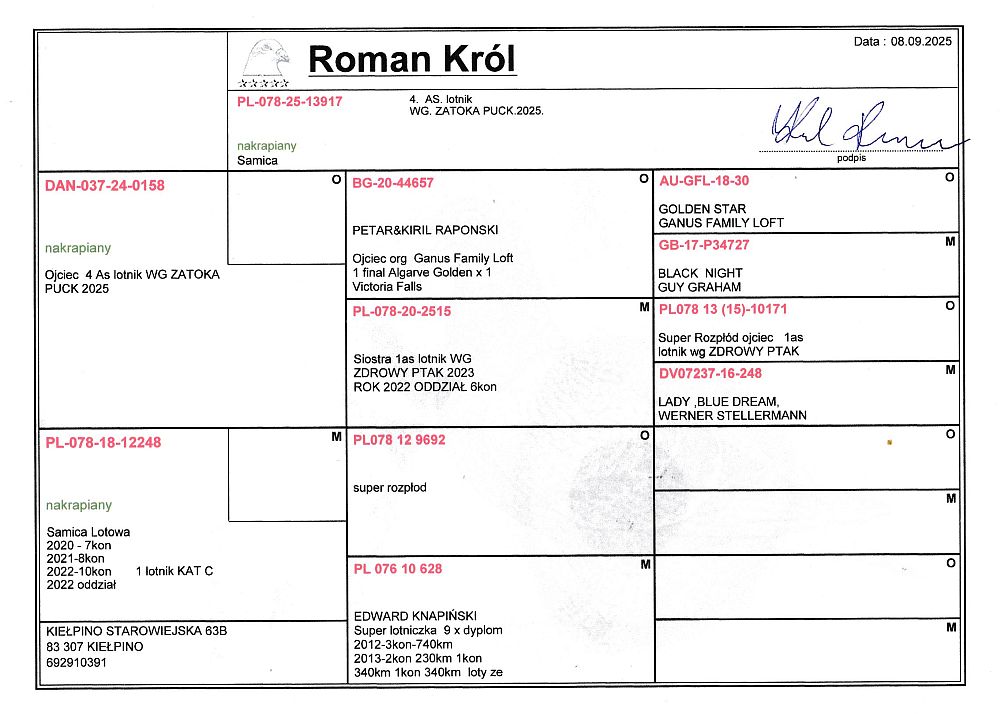 Data : 08.09.2025
Roman Król
PL-078-25-13917
4. AS. lotnik
WG. ZATOKA PUCK.2025.
nakrapiany
Samica
podpis
DAN-037-24-0158
O
nakrapiany
Ojciec 4 As lotnik WG ZATOKA
PUCK 2025
BG-20-44657
O
PETAR&KIRIL RAPONSKI
Ojciec org Ganus Family Loft
1 final Algarve Golden x 1
Victoria Falls
PL-078-20-2515
M
Siostra 1as lotnik WG
ZDROWY PTAK 2023
ROK 2022 ODDZIAŁ 6kon
AU-GFL-18-30
O
GOLDEN STAR
GANUS FAMILY LOFT
GB-17-P34727
M
BLACK NIGHT
GUY GRAHAM
PL078 13 (15)-10171
O
Super Rozpłód ojciec 1as
lotnik wg ZDROWY PTAK
DV07237-16-248
M
LADY ,BLUE DREAM,
WERNER STELLERMANN
PL-078-18-12248
M
nakrapiany
Samica Lotowa
2020 - 7kon
2021-8kon
2022-10kon 1 lotnik KAT C
2022 oddział
PL078 12 9692
O
super rozpłod
PL 076 10 628
M
EDWARD KNAPIŃSKI
Super lotniczka 9 x dyplom
2012-3kon-740km
2013-2kon 230km 1kon
340km 1kon 340km loty ze
O
M
O
M
KIEŁPINO STAROWIEJSKA 63B
83 307 KIEŁPINO
692910391